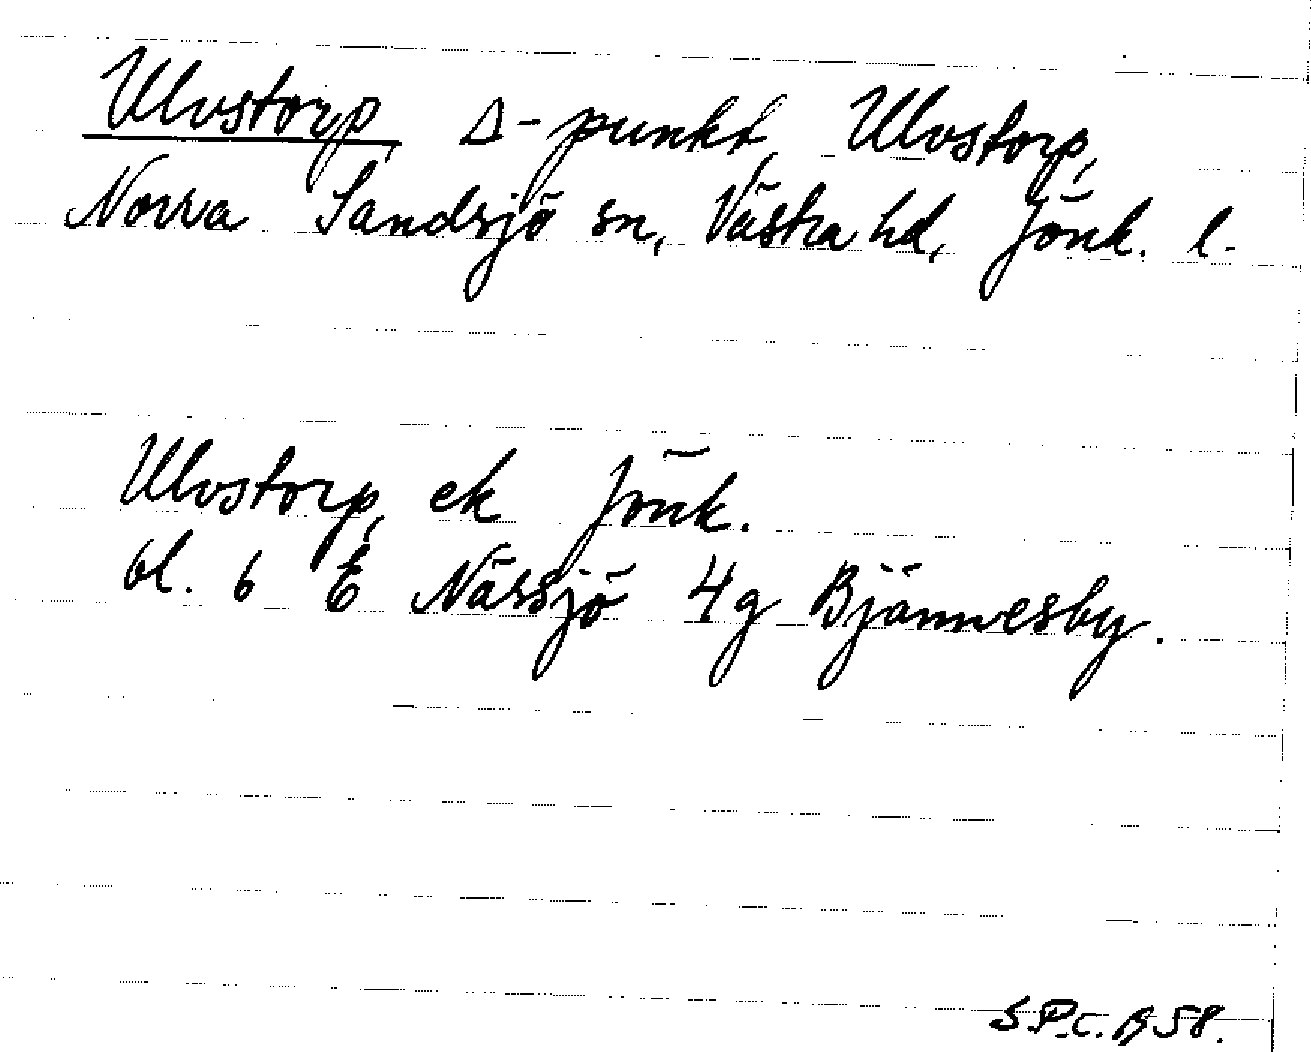 Ulvstorp, Δ-punkt, Ulvstorp,
Norra Sandsjö sn, Västra hd, Jönk. l.
Ulvstorp, ek Jönk.
bl. 6 E Nässjö 4g Bjännesby.
S.P.C. B 58.